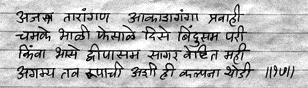 अजस्त्र तारांगण आकाशगंगा प्रवाही
चमके भाळी फेसाळे दिसे बिंदुसम परी
किंवा भासे द्वीपासम सागर वेष्टित मही
अगम्य तव रूपाची अशी ही कल्पना थोडी ॥१७॥